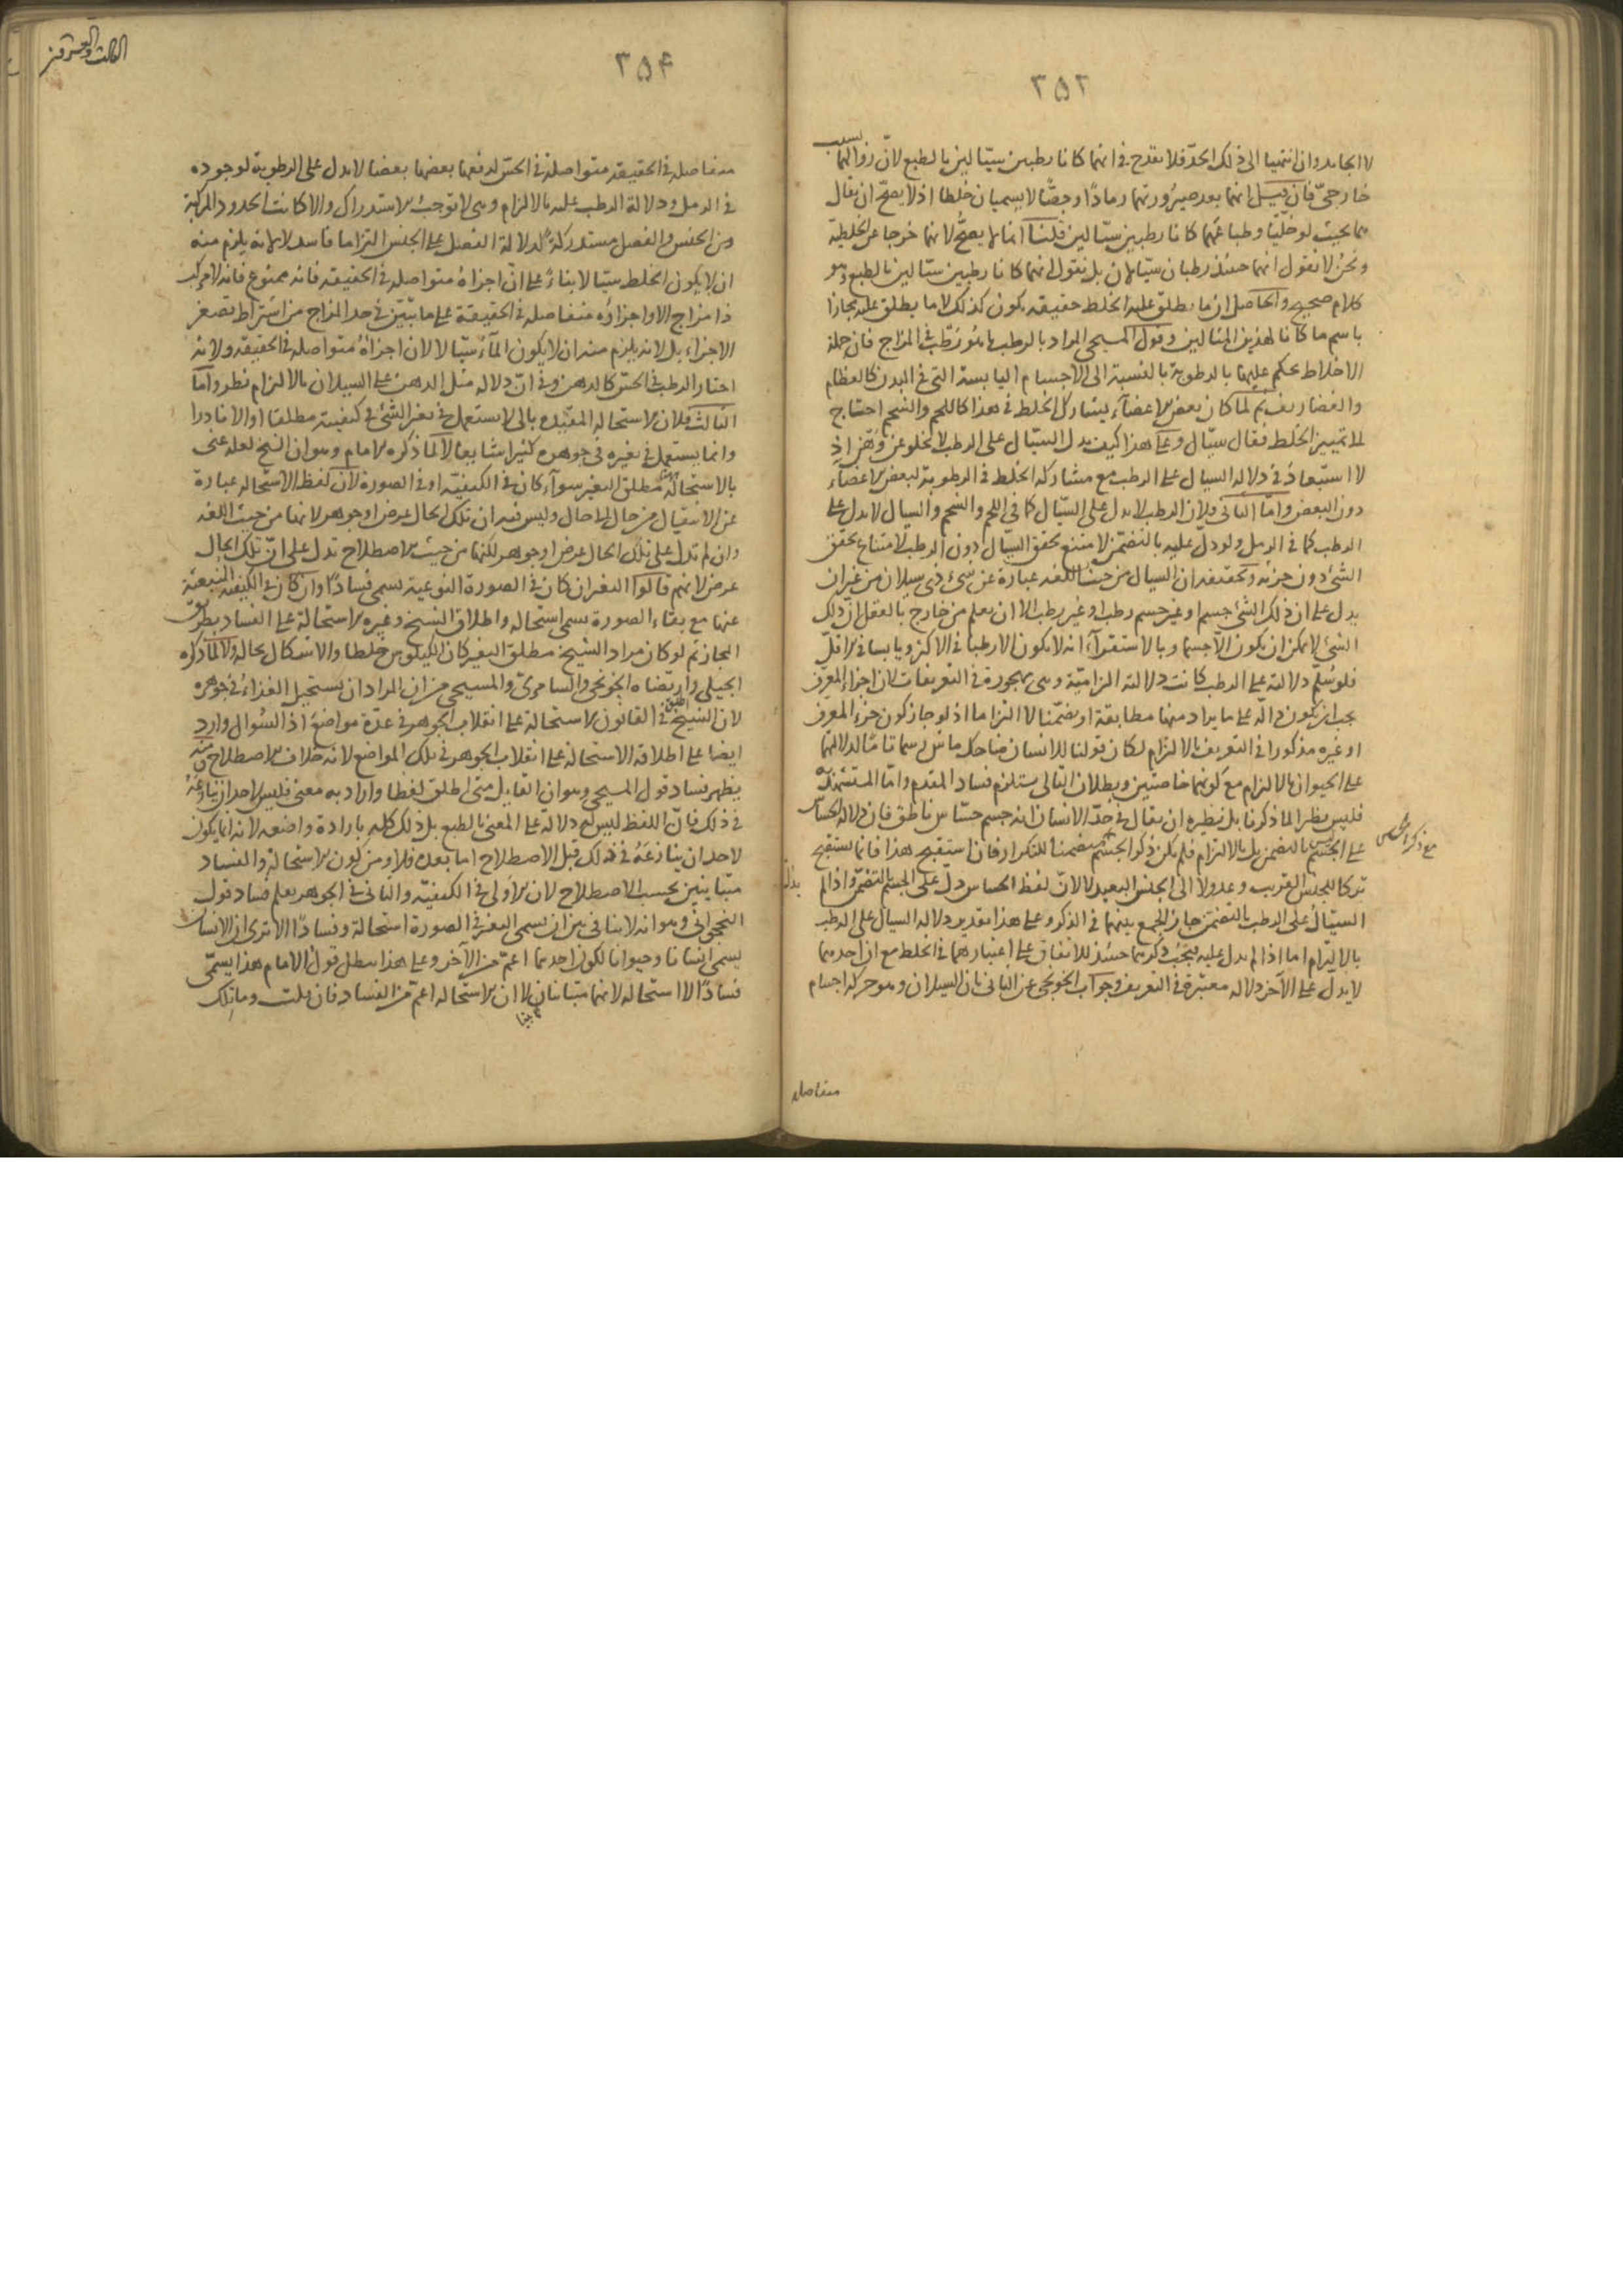 ٣٥٣
لا الجامد وان انتهيا الى ذلك الحد فلا يقدح في انهما كانا رطبين سيّالين بالطبع لانّ زوالهما بسبب
خارجيّ فان قيل انهما بعد صيرورتهما رمادًا وجصًّا لا يسميان خلطا اذ لا يصحّ ان يقال
هما بحيث لو خلّيا وطباعهما كانا رطبين سيّالين قلنا انما لا يصحّ لانهما خرجا عن الخلطية
ونحن لا نقول انهما حينئذ رطبان سيّالان بل نقول انهما كانا رطبين سيّالين بالطبع وهو
كلام صحيح والحاصل ان ما يطلق عليه الخلط حقيقة يكون كذلك لا ما يطلق عليه مجازا
باسم ما كانا لهذين المثالين وقول المسيحي المراد بالرطب ما يُورَطّب في المزاج فان جملة
الاخلاط يحكم عليها بالرطوبة بالنسبة الى الاجسام اليابسة التي في البدن كالعظام
والغضاريف ثم لما كان بعض الاعضاء يشارك الخلط في هذا كاللحم والشحم احتاج
الى تمييز الخلط فقال سيّال وعلى هذا كيف يدل السيّال على الرطب لا يخلو عن وَهْن اذ
لا استبعاد في دلالة السيال على الرطب مع مشاركة الخلط في الرطوبة لبعض الاعضاء
دون البعض وامّا الثاني فلانّ الرطب لا يدل على السيّال كما في اللحم والشحم والسيال لا يدل على
الرطب كما في الرمل ولو دلّ عليه بالتضمّن لامتنع تحقق السيّال دون الرطب لامتناع تحقق
الشئ دون جزئه وتحقيقه ان السيال من حيث اللغة عبارة عن شئ ذي سيلان من غير ان
يدل على ان ذلك الشئ جسم او غير جسم رطب او غير رطب الا ان يعلم من خارج بالعقل ان ذلك
الشئ لا يمكن ان يكون الا جسما وبالاستقراء انه لا يكون الا رطبا في الاكثر ويابسا في الاقلّ
فلو سُلّم دلالته على الرطب كانت دلالة التزامية وهي مهجورة في التعريفات لان اجزاء المعرّف
يجب ان يكون دالّة على ما يراد منها مطابقة او تضمّنا لا التزاما اذ لو جاز كون جزء المعرف
او غيره مذكورا في التعريف بالالتزام لكان قولنا للانسان ضاحك ماش رسما تامّا لدلالتهما
على الحيوان بالالتزام مع كونهما خاصتين وبطلان التالي يستلزم فساد المقدم وامّا المستشهد به
فليس نظيرا لما ذكرنا بل نظيره ان يقال في حدّ الانسان انه جسم حسّاس ناطق فان دلالة الحسّاس
على الجسم ليس بالتضمن بل بالالتزام فلم يكن ذكر الجسم متضمنا للتكرار فان استقبح هذا فانما يستقبح
مع ذكر الحساس
تركا للجنس القريب وعدولا الى الجنس البعيد لا لانّ لفظ الحساس دلّ على الجسم بالتضمّن واذا لم
السيّال على الرطب بالتضمّن جاز الجمع بينهما في الذكر وعلى هذا تقدير دلالة السيال على الرطب
بالالتزام اما اذا لم يدل عليه فيجب ذكرهما حينئذ للاتفاق على اعتبارهما في الخلط مع ان احدهما
لا يدلّ على الآخر دلالة معتبرة في التعريف وجواب الخونجي عن الثاني بان السيلان وهو حركة اجسام
متفاصلة
٣٥۴
متفاصلة في الحقيقة متواصلة في الحسّ لدفعها بعضها بعضا لا يدل على الرطوبة لوجوده
في الرمل ودلالة الرطب عليه بالالتزام وهي لا توجب الاستدراك والا كانت الحدود المركبة
من الجنس والفصل مستدركة لدلالة الفصل على الجنس التزاما فاسد لا لانه يلزم منه
ان لا يكون الخلط سيّالا بناءً على انّ اجزاءه متواصلة في الحقيقة فانه ممنوع فانه لا مركب
ذا مزاج الا واجزاؤه متفاصلة في الحقيقة على ما تبيّن في حدّ المزاج من اشتراط تصغر
الاجزاء بل لانه يلزم منه ان لا يكون الماء سيّالا لان اجزاءه متواصلة في الحقيقة ولانه
اختار الرطب في الحسّ كالدهن وفي انّ دلالة مثل الدهن على السيلان بالالتزام نظر وامّا
الثالث فلان الاستحالة المقيّدة بالى لا يستعمل في تغيّر الشئ في كيفيته مطلقا او الا نادرا
وانما يستعمل في تغيره في جوهره كثيرا شايعا لا لما ذكره الامام وهو ان الشيخ لعله عنى
بالاستحالة مطلق التغير سواء كان في الكيفيّة او في الصورة لانّ لفظ الاستحالة عبارة
عن الانتقال من حال الى حال وليس فيه ان تلك الحال عرض او جوهر لانها من حيث اللغة
وان لم تدل على تلك الحال عرض او جوهر لكنها من حيث الاصطلاح تدل على انّ تلك الحال
عرض لانهم قالوا التغير ان كان في الصورة النوعية يسمى فسادًا وان كان في الكيفية المنبعثة
عنها مع بقاء الصورة يسمى استحالة واطلاق الشيخ وغيره الاستحالة على الفساد بطريق
المجاز ثم لو كان مراد الشيخ مطلق التغير كان الكيلوس خلطا والاشكال بحاله ولا لما ذكره
الجيلي وارتضاه الخونجي والسامري والمسيحي من ان المراد ان يستحيل الغذاء في جوهره
لان الشيخ اطلق في القانون الاستحالة على انقلاب الجوهر في عدّة مواضع اذ السؤال وارد
ايضا على اطلاقه الاستحالة على انقلاب الجوهر في تلك المواضع لانه خلاف الاصطلاح ومنه
يظهر فساد قول المسيحي وهو ان القايل متى اطلق لفظا واراد به معنى فليس لاحد ان ينازعه
في ذلك فانّ اللفظ ليس له دلالة على المعنى بالطبع بل ذلك كله بارادة واضعه لانه انما يكون
لاحد ان ينازعه في ذلك قبل الاصطلاح اما بعده فلا ومن كون الاستحالة والفساد
متباينين بحسب الاصطلاح لان الاولى في الكيفيّة والثاني في الجوهر يعلم فساد قول
النخجواني وهو انه لا ينافي بين ان يسمى التغير في الصورة استحالة وفسادًا الا ترى ان الانسان
يسمى انسانا وحيوانا لكون احدهما اعمّ من الآخر وعلى هذا يبطل قول الامام هذا يسمّى
فسادًا لا استحالة لانهما متباينان لا ان الاستحالة اعمّ من الفساد فان قلت وما تلك